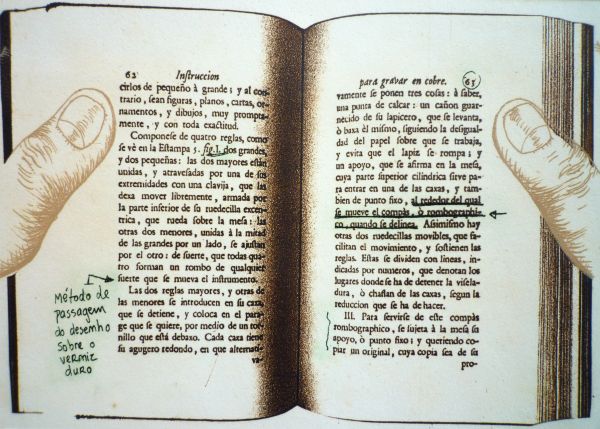 62 Instruccion
cirlos de pequeño à grande; y al con-
trario, sean figuras, planos, cartas, or-
namentos, y dibujos, muy prompta-
mente, y con toda exactitud.
Componese de quatro reglas, como
se vè en la Estampa 5. fig. 1. dos grandes,
y dos pequeñas: las dos mayores están
unidas, y atravesadas por una de sus
extremidades con una clavija, que las
dexa mover libremente, armada por
la parte inferior de su ruedecilla excen-
trica, que rueda sobre la mesa: las
otras dos menores, unidas à la mitad
de las grandes por un lado, se ajustan
por el otro: de suerte, que todas qua-
tro forman un rombo de qualquier
suerte que se mueva el instrumento.
Las dos reglas mayores, y otras de
las menores se introducen en su caxa,
que se detiene, y coloca en el para-
ge que se quiere, por medio de un tor-
nillo que está debaxo. Cada caxa tiene
su agugero redondo, en que alternati-
va-
Método de
passagem
do desenho
sobre o
verniz
duro
para gravar en cobre. 63
vamente se ponen tres cosas: à saber,
una punta de calcar: un cañon guar-
necido de su lapicero, que se levanta,
ò baxa èl mismo, siguiendo la desigual-
dad del papel sobre que se trabaja,
y evita que el lapiz se rompa; y
un apoyo, que se afirma en la mesa,
cuya parte superior cilindrica sirve pa-
ra entrar en una de las caxas, y tam-
bien de punto fixo, al rededor del qual
se mueve el compàs, ò rombographi-
co, quando se delinea. Asimismo hay
otras dos ruedecillas movibles, que fa-
cilitan el movimiento, y sostienen las
reglas. Estas se dividen con lineas, in-
dicadas por numeros, que denotan los
lugares donde se ha de detener la visela-
dura, ò chaflan de las caxas, segun la
reduccion que se ha de hacer.
III. Para servirse de este compàs
rombographico, se sujeta à la mesa su
apoyo, ò punto fixo; y queriendo co-
piar un original, cuya copia sea de su
pro-